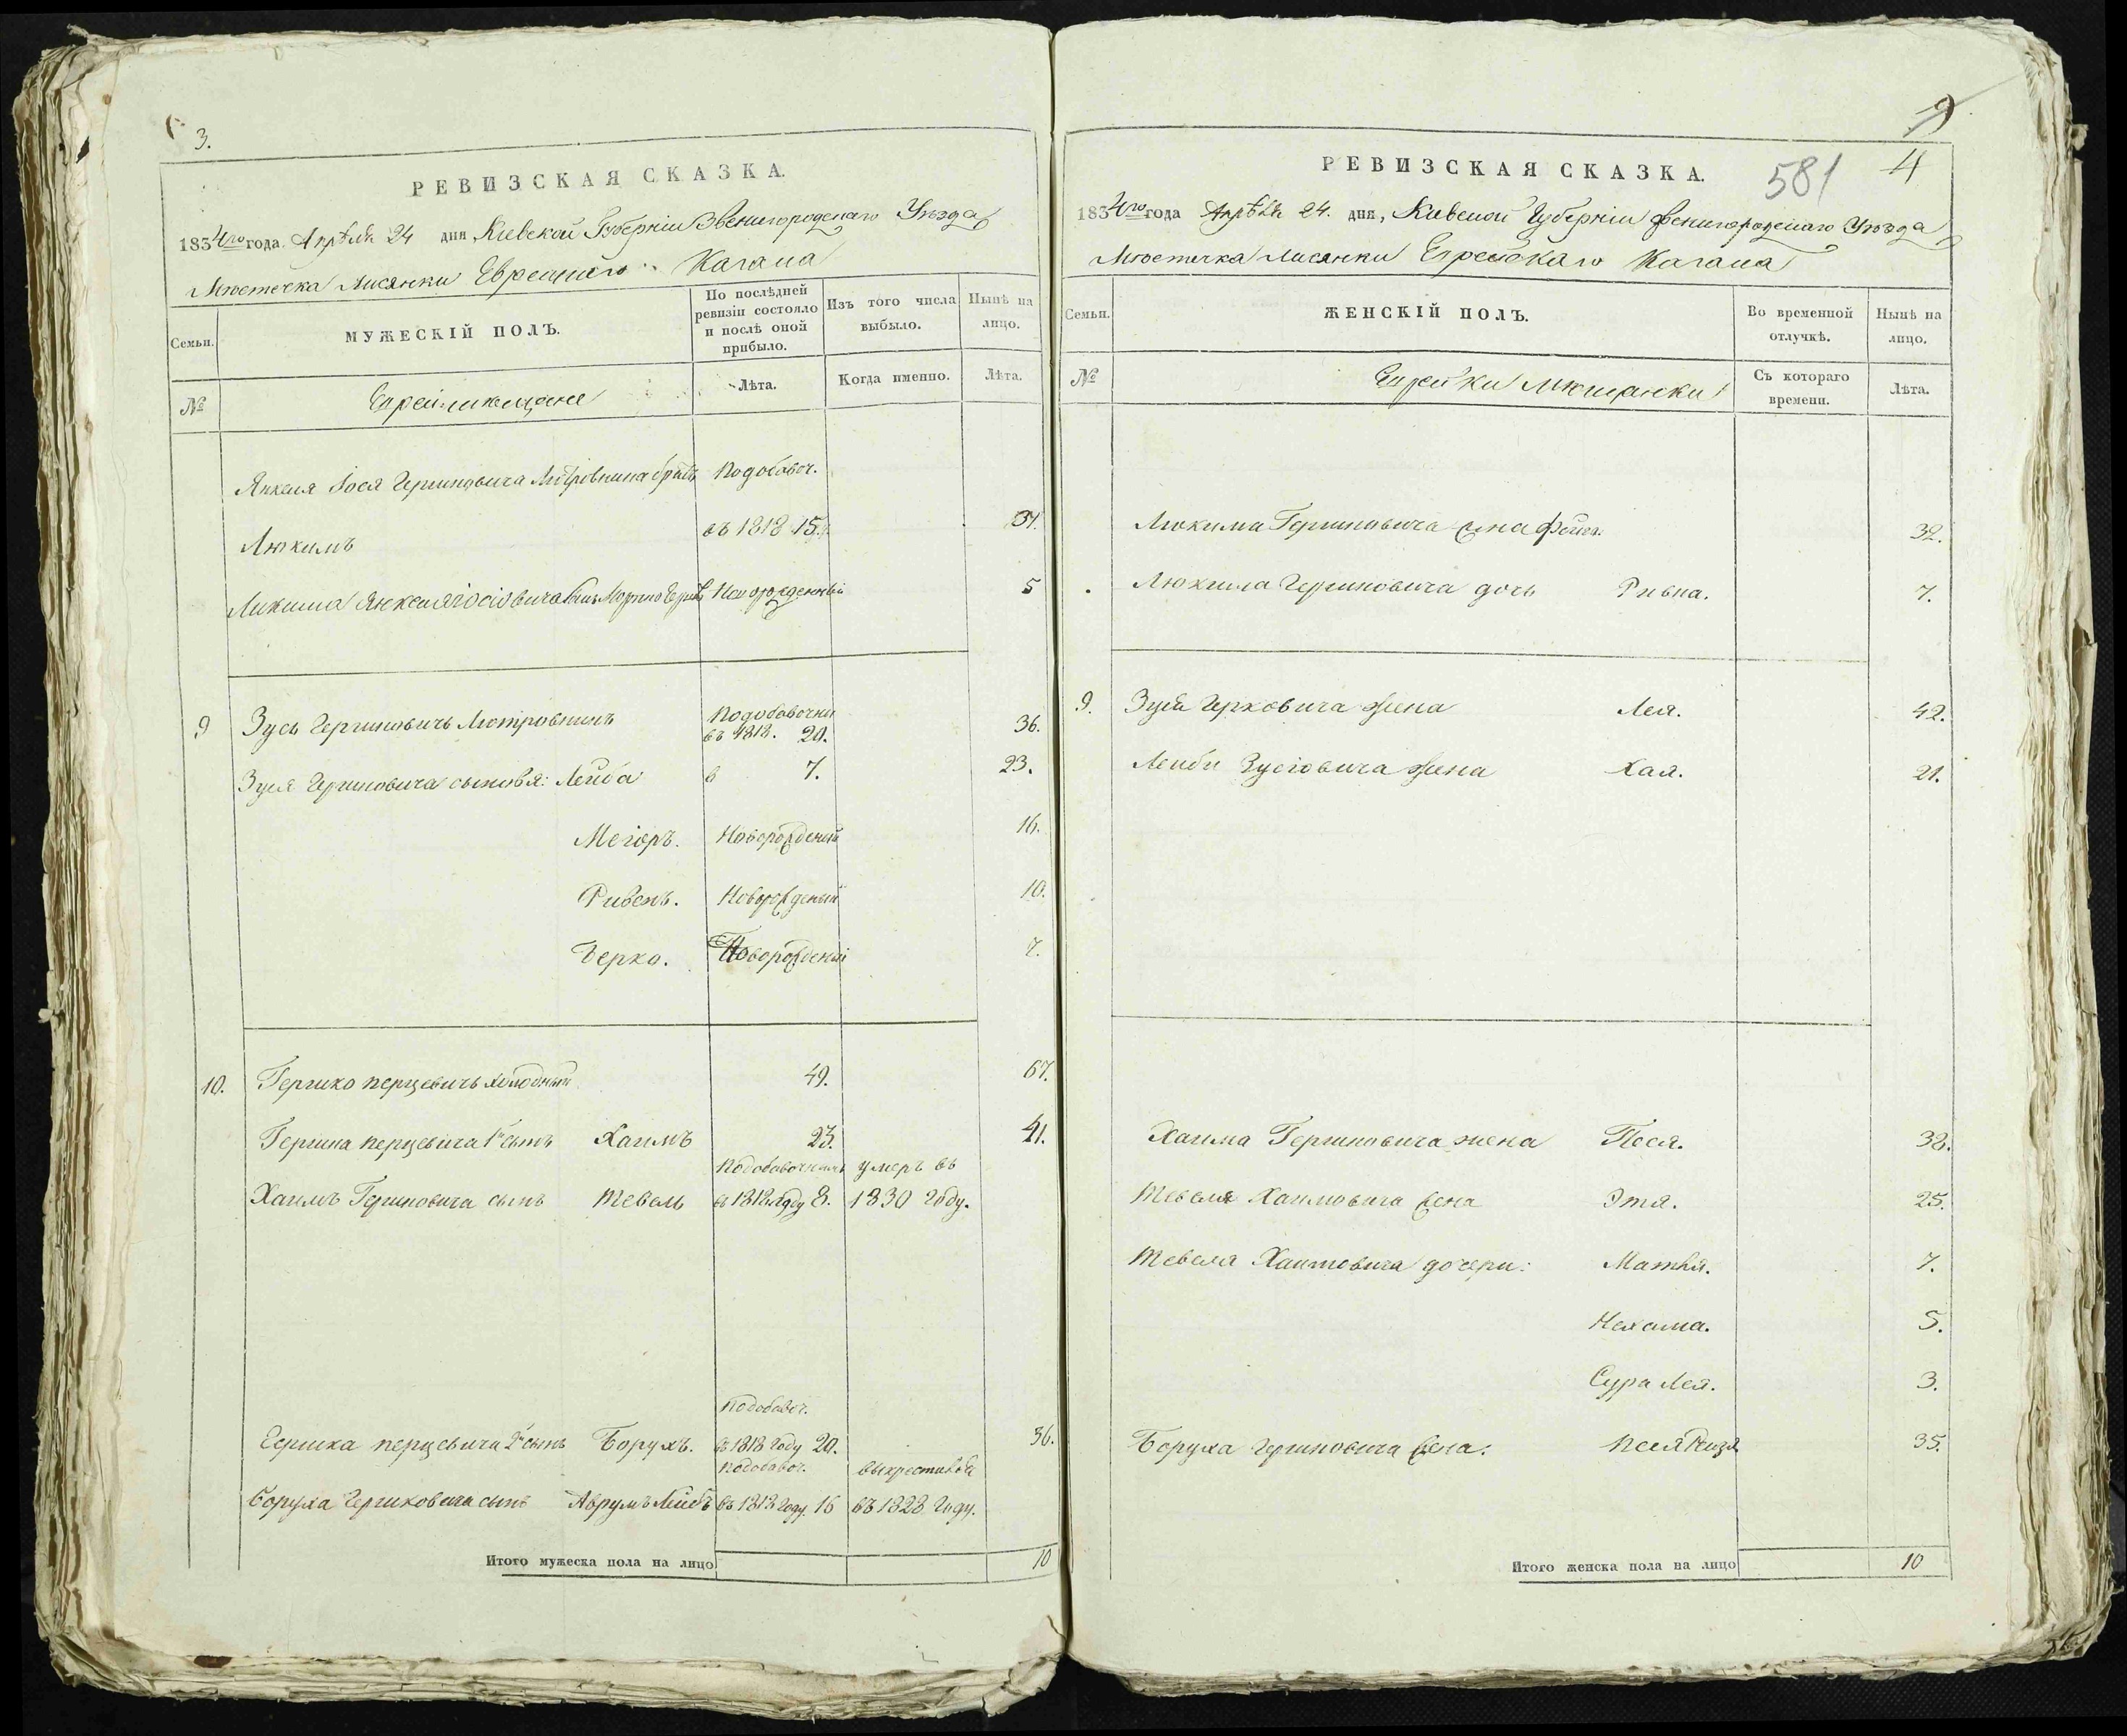 3.
РЕВИЗСКАЯ СКАЗКА.
1834го года Апрѣля 24 дня Кіевской Губерніи Звенигородскаго Уѣзда
Мѣстечка Лисянки Еврейскаго Кагала
Семьи.
МУЖЕСКІЙ ПОЛЪ.
По послѣдней ревизіи состояло и послѣ оной прибыло.
Изъ того числа выбыло.
Нынѣ на лицо.
№
Евреи мещане
Лѣта.
Когда именно.
Лѣта.
Янкеля Іося Гершковича братъ Подобавоч.
Люкимъ въ 1818 15. 31.
Люкима сынъ Новорожденный 5
9 Зусь Гершковичъ Подобавочн
въ 1818. 20. 36.
Зуся Гершковича сыновья: Лейба 7. 23.
Меіоръ. Новорожденный 16.
Ривенъ. Новорожденый 10.
Берко. Новорожденый 7.
10. Гершко Перцевичъ Холодный 49. 67.
Гершка Перцевича 1й сынъ Хаимъ 23. 41.
Подобавочнымъ умеръ въ
Хаимъ Гершковича сынъ Тевель въ 1818 году 8. 1830 году.
Подобавоч.
Гершка Перцевича 2й сынъ Борухъ. въ 1818 году 20. 36.
Подобавоч. выкрестился
Боруха Гершковича сынъ Аврумъ Лейбъ въ 1818 году 16 въ 1828 году.
Итого мужеска пола на лицо 10
9
4
581
РЕВИЗСКАЯ СКАЗКА.
1834го года Апрѣля 24. дня, Кіевской Губерніи Звенигородскаго Уѣзда
Мѣстечка Лисянки Еврейскаго Кагала
Семьи.
ЖЕНСКІЙ ПОЛЪ.
Во временной отлучкѣ.
Нынѣ на лицо.
№
Еврейки мѣщанки
Съ котораго времени.
Лѣта.
Люкима Гершковича жена 32.
Люкима Гершковича дочь Ривка. 7.
9. Зуся Герковича жена Лея. 42.
Лейби Зусіовича жена Хая. 21.
Хаима Гершковича жена Песя. 38.
Тевеля Хаимовича жена Этя. 25.
Тевеля Хаимовича дочери: Матля. 7.
Нехама. 5.
Сура Лея. 3.
Боруха Гершковича жена: Песя Рейзя 35.
Итого женска пола на лицо 10